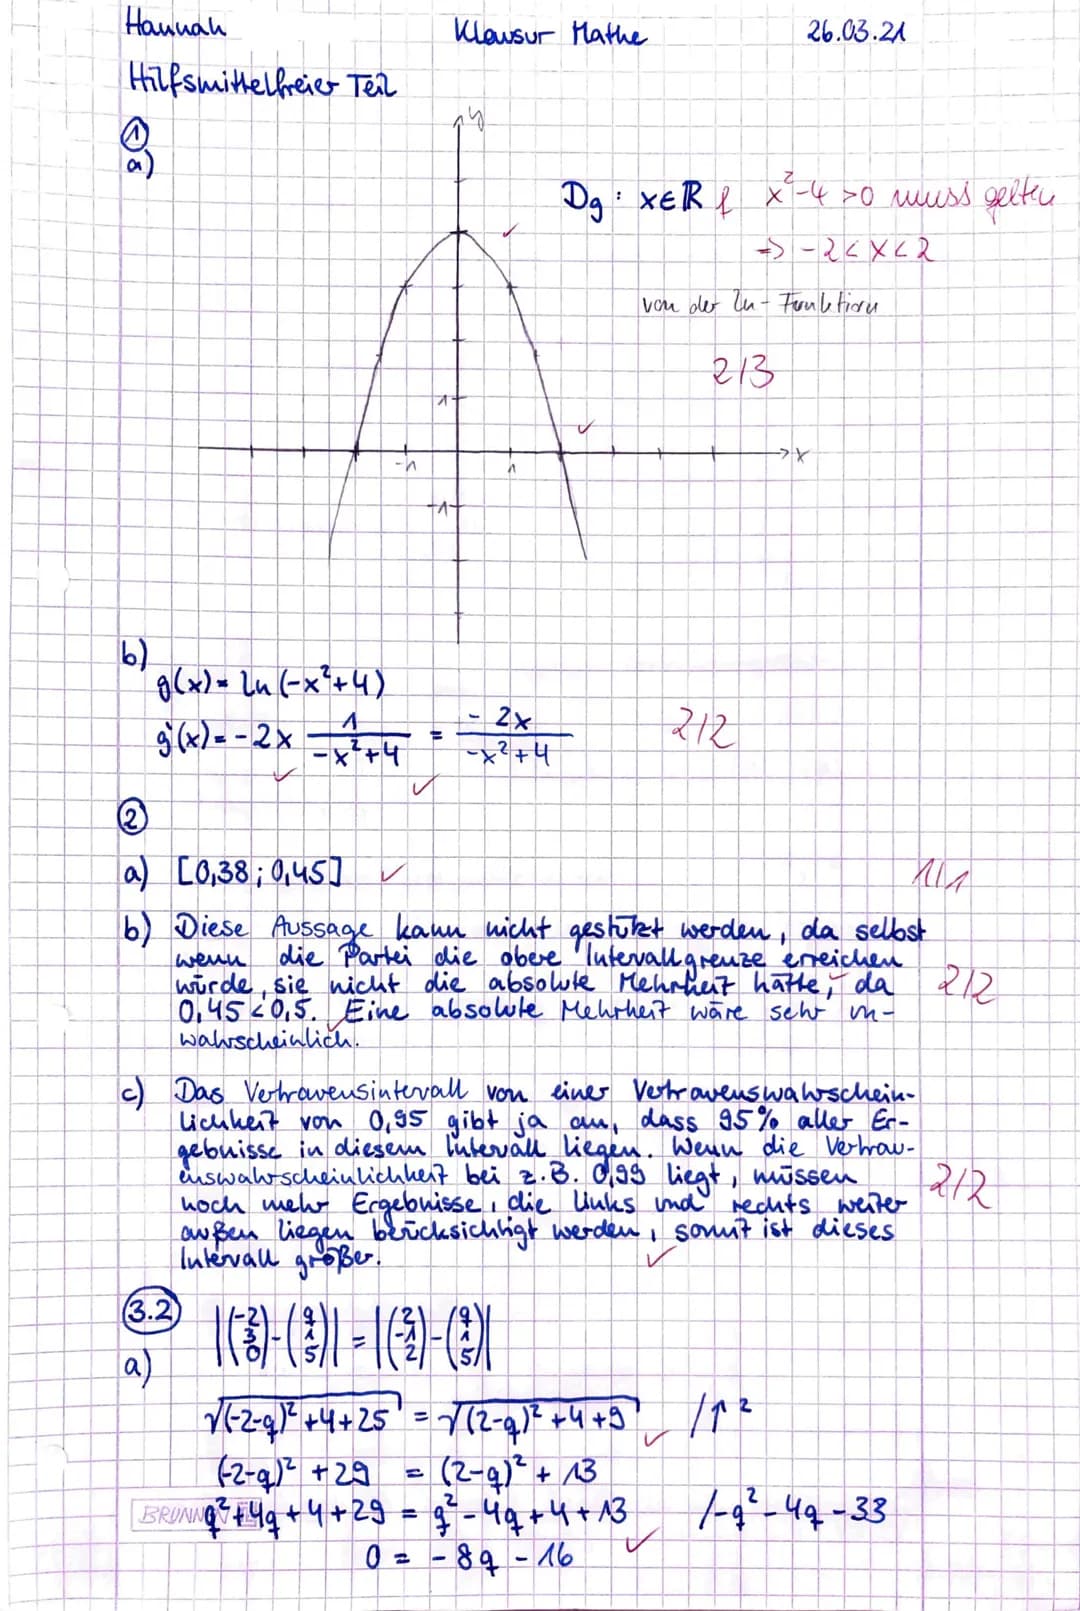 Hannah Klausur Mathe 26.03.21
Hilfsmittelfreier Teil
①
a)
y
Dg: x∈ℝ f x²-4 >0 muss gelten
=> -2<x<2
von der ln-Funktion
2/3
1
-1 1 x
-1
b)
g(x) = ln(-x²+4)
g'(x) = -2x 1/(-x²+4) = -2x/(-x²+4) 2/2
②
a) [0,38; 0,45] ✓ 1/1
b) Diese Aussage kann nicht gestützt werden, da selbst
wenn die Partei die obere Intervallgrenze erreichen
würde, sie nicht die absolute Mehrheit hätte, da 2/2
0,45<0,5. Eine absolute Mehrheit wäre sehr un-
wahrscheinlich.
c) Das Vertrauensintervall von einer Vertrauenswahrschein-
lichkeit von 0,95 gibt ja an, dass 95% aller Er-
gebnisse in diesem Intervall liegen. Wenn die Vertrau-
enswahrscheinlichkeit bei z.B. 0,99 liegt, müssen 2/2
noch mehr Ergebnisse, die links und rechts weiter
außen liegen berücksichtigt werden, somit ist dieses
Intervall größer.
3.2
a) |(-2 3 0) - (q 1 5)| = |(2 -1 2) - (q 1 5)|
√((-2-q)²+4+25) = √((2-q)²+4+9) /↑²
(-2-q)² + 29 = (2-q)² + 13
q²+4q+4+29 = q²-4q+4+13 /-q²-4q-33
0 = -8q - 16
BRUNN